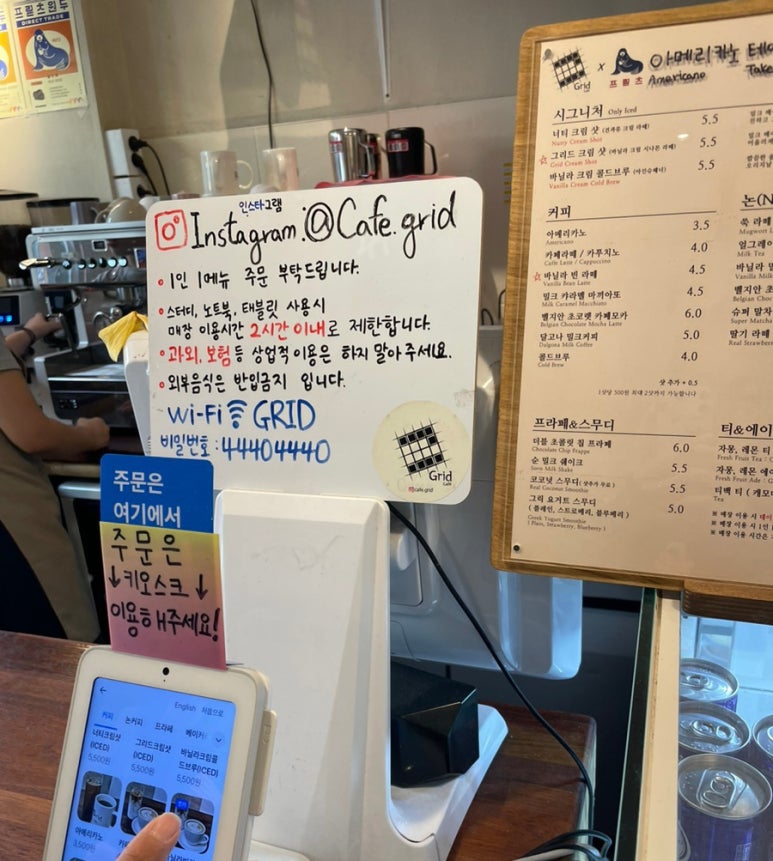 프릳츠원두
DIRECT TRADE
인스타그램
Instagram:@Cafe.grid
1인 1메뉴 주문 부탁드립니다.
스터디, 노트북, 태블릿 사용시
매장 이용시간 2시간 이내로 제한합니다.
과외, 보험 등 상업적 이용은 하지 말아주세요.
외부음식은 반입금지 입니다.
Wi-Fi GRID
비밀번호 : 44404440
Grid
Cafe
@cafe.grid
주문은
여기에서
주문은
↓키오스크↓
이용해주세요!
English 처음으로
커피 논커피 프라페
너티크림샷
(ICED)
5,500원
그리드크림샷
(ICED)
5,500원
바닐라크림콜
드브루(ICED)
5,500원
아메리카노
3,500원
Grid x 프릳츠
아메리카노
Americano
시그니처 Only Iced
너티 크림 샷 (견과류 크림 라떼) 5.5
Nutty Cream Shot
☆그리드 크림 샷 (바닐라 크림 시나몬 라떼) 5.5
Grid Cream Shot
바닐라 크림 콜드브루 (아인슈페너) 5.5
Vanilla Cream Cold Brew
커피
아메리카노 3.5
Americano
카페라떼 / 카푸치노 4.0
Caffe Latte / Cappuccino
☆바닐라 빈 라떼 4.5
Vanilla Bean Latte
밀크 캬라멜 마끼아또 4.5
Milk Caramel Macchiato
벨지안 초코렛 카페모카 6.0
Belgian Chocolate Mocha Latte
달고나 밀크커피 5.0
Dalgona Milk Coffee
콜드브루 4.0
Cold Brew
샷 추가 + 0.5
1샷당 500원 최대 2샷까지 가능합니다
프라페&스무디
더블 초콜릿 칩 프라페 6.0
Chocolate Chip Frappe
순 밀크 쉐이크 5.5
Soon Milk Shake
코코넛 스무디 (샷추가 무료) 5.5
Real Coconut Smoothie
그릭 요거트 스무디 5.0
( 플레인, 스트로베리, 블루베리 )
Greek Yogurt Smoothie
( Plain, Strawberry, Blueberry )
논(N
쑥 라떼
Mugwort L
얼그레이
Milk Tea
바닐라 밀
Vanilla M
벨지안 초
Belgian Choc
슈퍼 말차
Super Matcha
딸기 라떼
Real Strawberr
티&에이
자몽, 레몬 티
Fresh Fruit Tea :
자몽, 레몬 에
Fresh Fruit Ade :
티백 티 ( 캐모
Tea